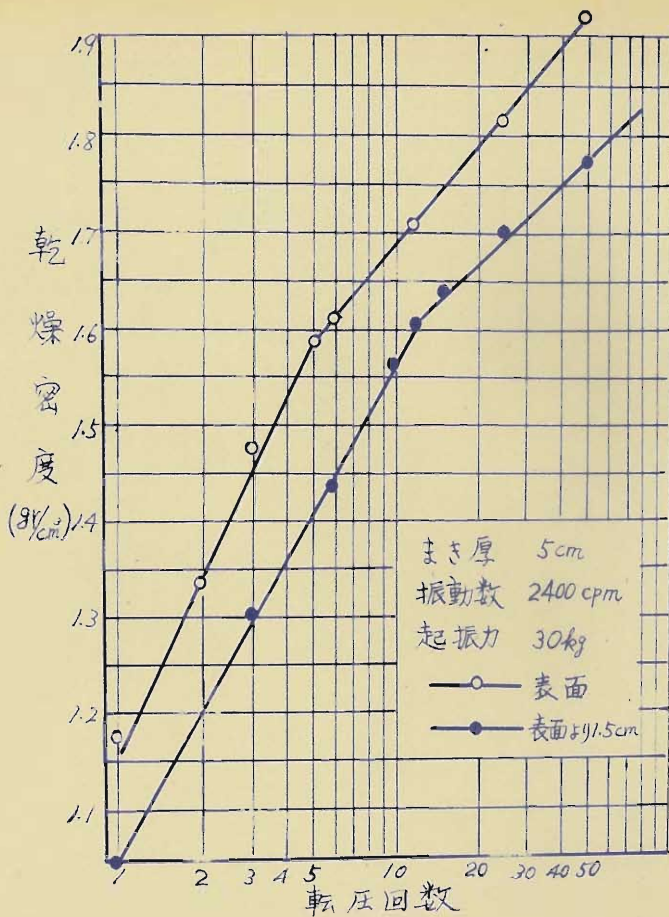 1.9
1.8
1.7
1.6
1.5
1.4
1.3
1.2
1.1
乾燥密度
(gr/cm³)
まき厚 5cm
振動数 2400 cpm
起振力 30kg
表面
表面より1.5cm
1 2 3 4 5 10 20 30 40 50
転圧回数